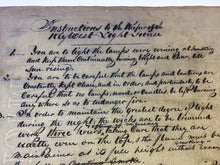 Instructions to the Keepers of
Light House
1. You are to light the lamps every evening at Sunset
and keep them Continually burning bright and Clear till
Sun rising.
2. You are to be Careful that the lamps and lanterns are
Constantly kept Clean and in order and particularly
careful that no
any where so as to endanger fire.
3. In order to maintain the greatest degree of light
during the night, the wicks are to be trimmed
every three hours, taking Care that they are
exactly even on the top, the
maintained at its full height without
smoke